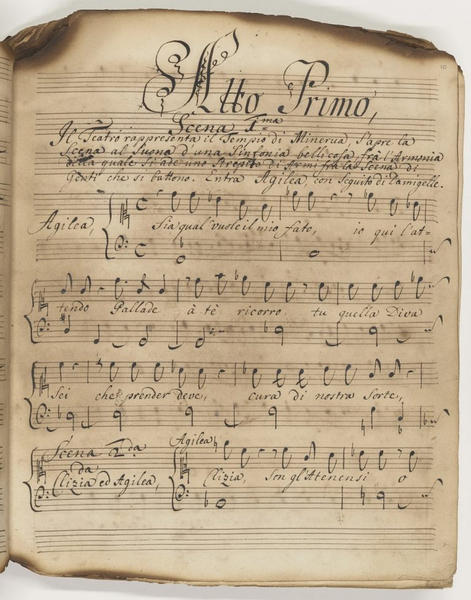 Atto Primo,
Scena 1.ma
Il Teatro rappresenta il Tempio di Minerva, S'apre la
Scena al Suono d'una Sinfonia bellicosa frà l'Armonia
quale S'ode uno Strepito d'Armi frà la Scena di
Genti che si battono. Entra Agilea, con Seguito di Damigelle.
Agilea, Sia qual vuole il mio fato, io qui l'at=
tendo Pallade à tè ricorro tu quella Diva
Sei che prender deve, cura di nostra Sorte,
Scena 2.da Agilea
Clizia ed Agilea, Clizia, Son gl'Ateniensi o